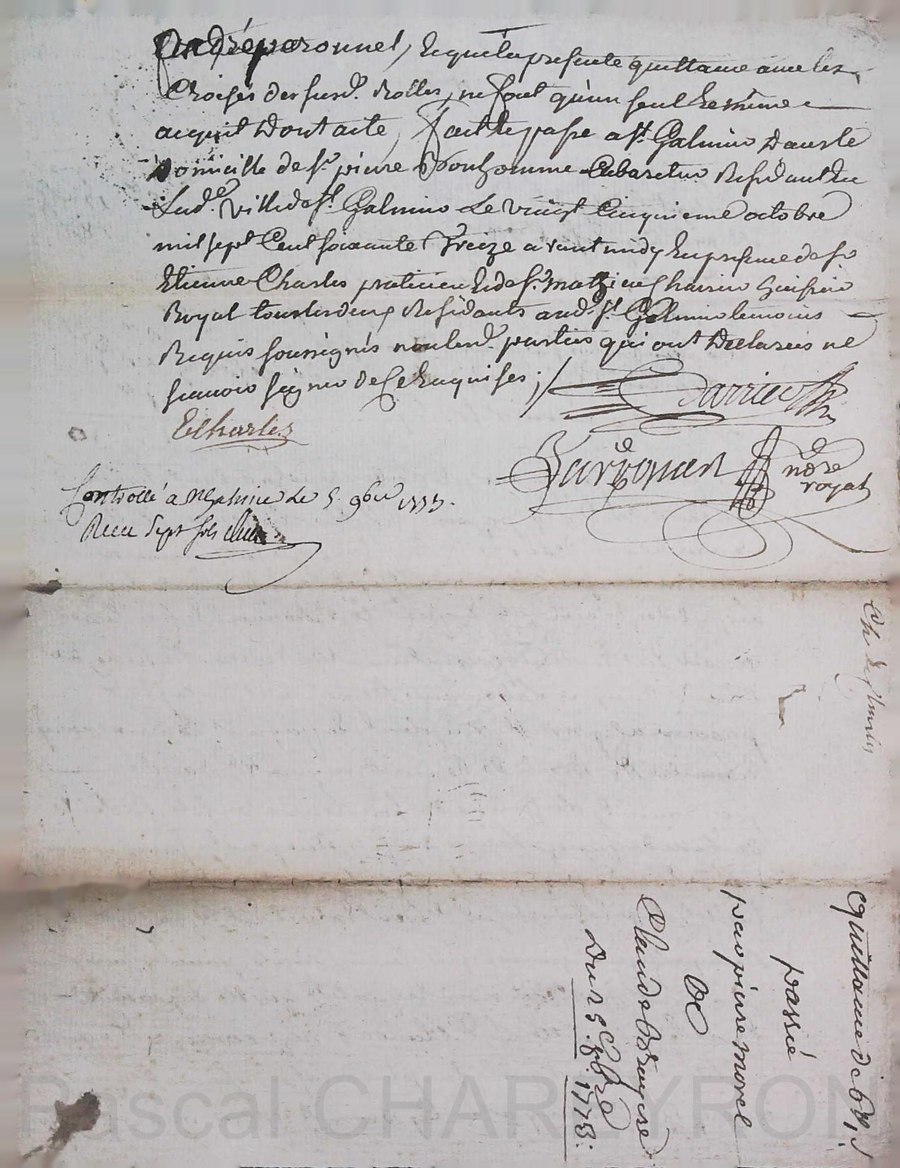 André peronnel, Et que la presente quittance avec les
Choises des susd. Rolles, ne font qu'un seul et meme
acquit Dont acte, fait et passé a St. Galmier Dans le
Domicille de Sr. pierre Bonhomme Cabaretier Résidant En
Lad. Ville de St. Galmier Le vingt Cinquieme octobre
mil sept Cent soixante Treize avant midy En presence de Sr
Etienne Charles praticien Et de Sr. mathieu huissier
Royal tous les deux Residants aud. St. Galmier temoins
Requis soussignés non led. parties qui ont Declarées ne
scavoir signer de Ce Enquises ;
Echarles
royal
Controllé a St Galmier Le 5 9bre 1773.
Receu Sept sols
quittance de
passée
par pierre morel
a
Claude
Du 25 8bre 1773.
Pascal CHARLEYRON